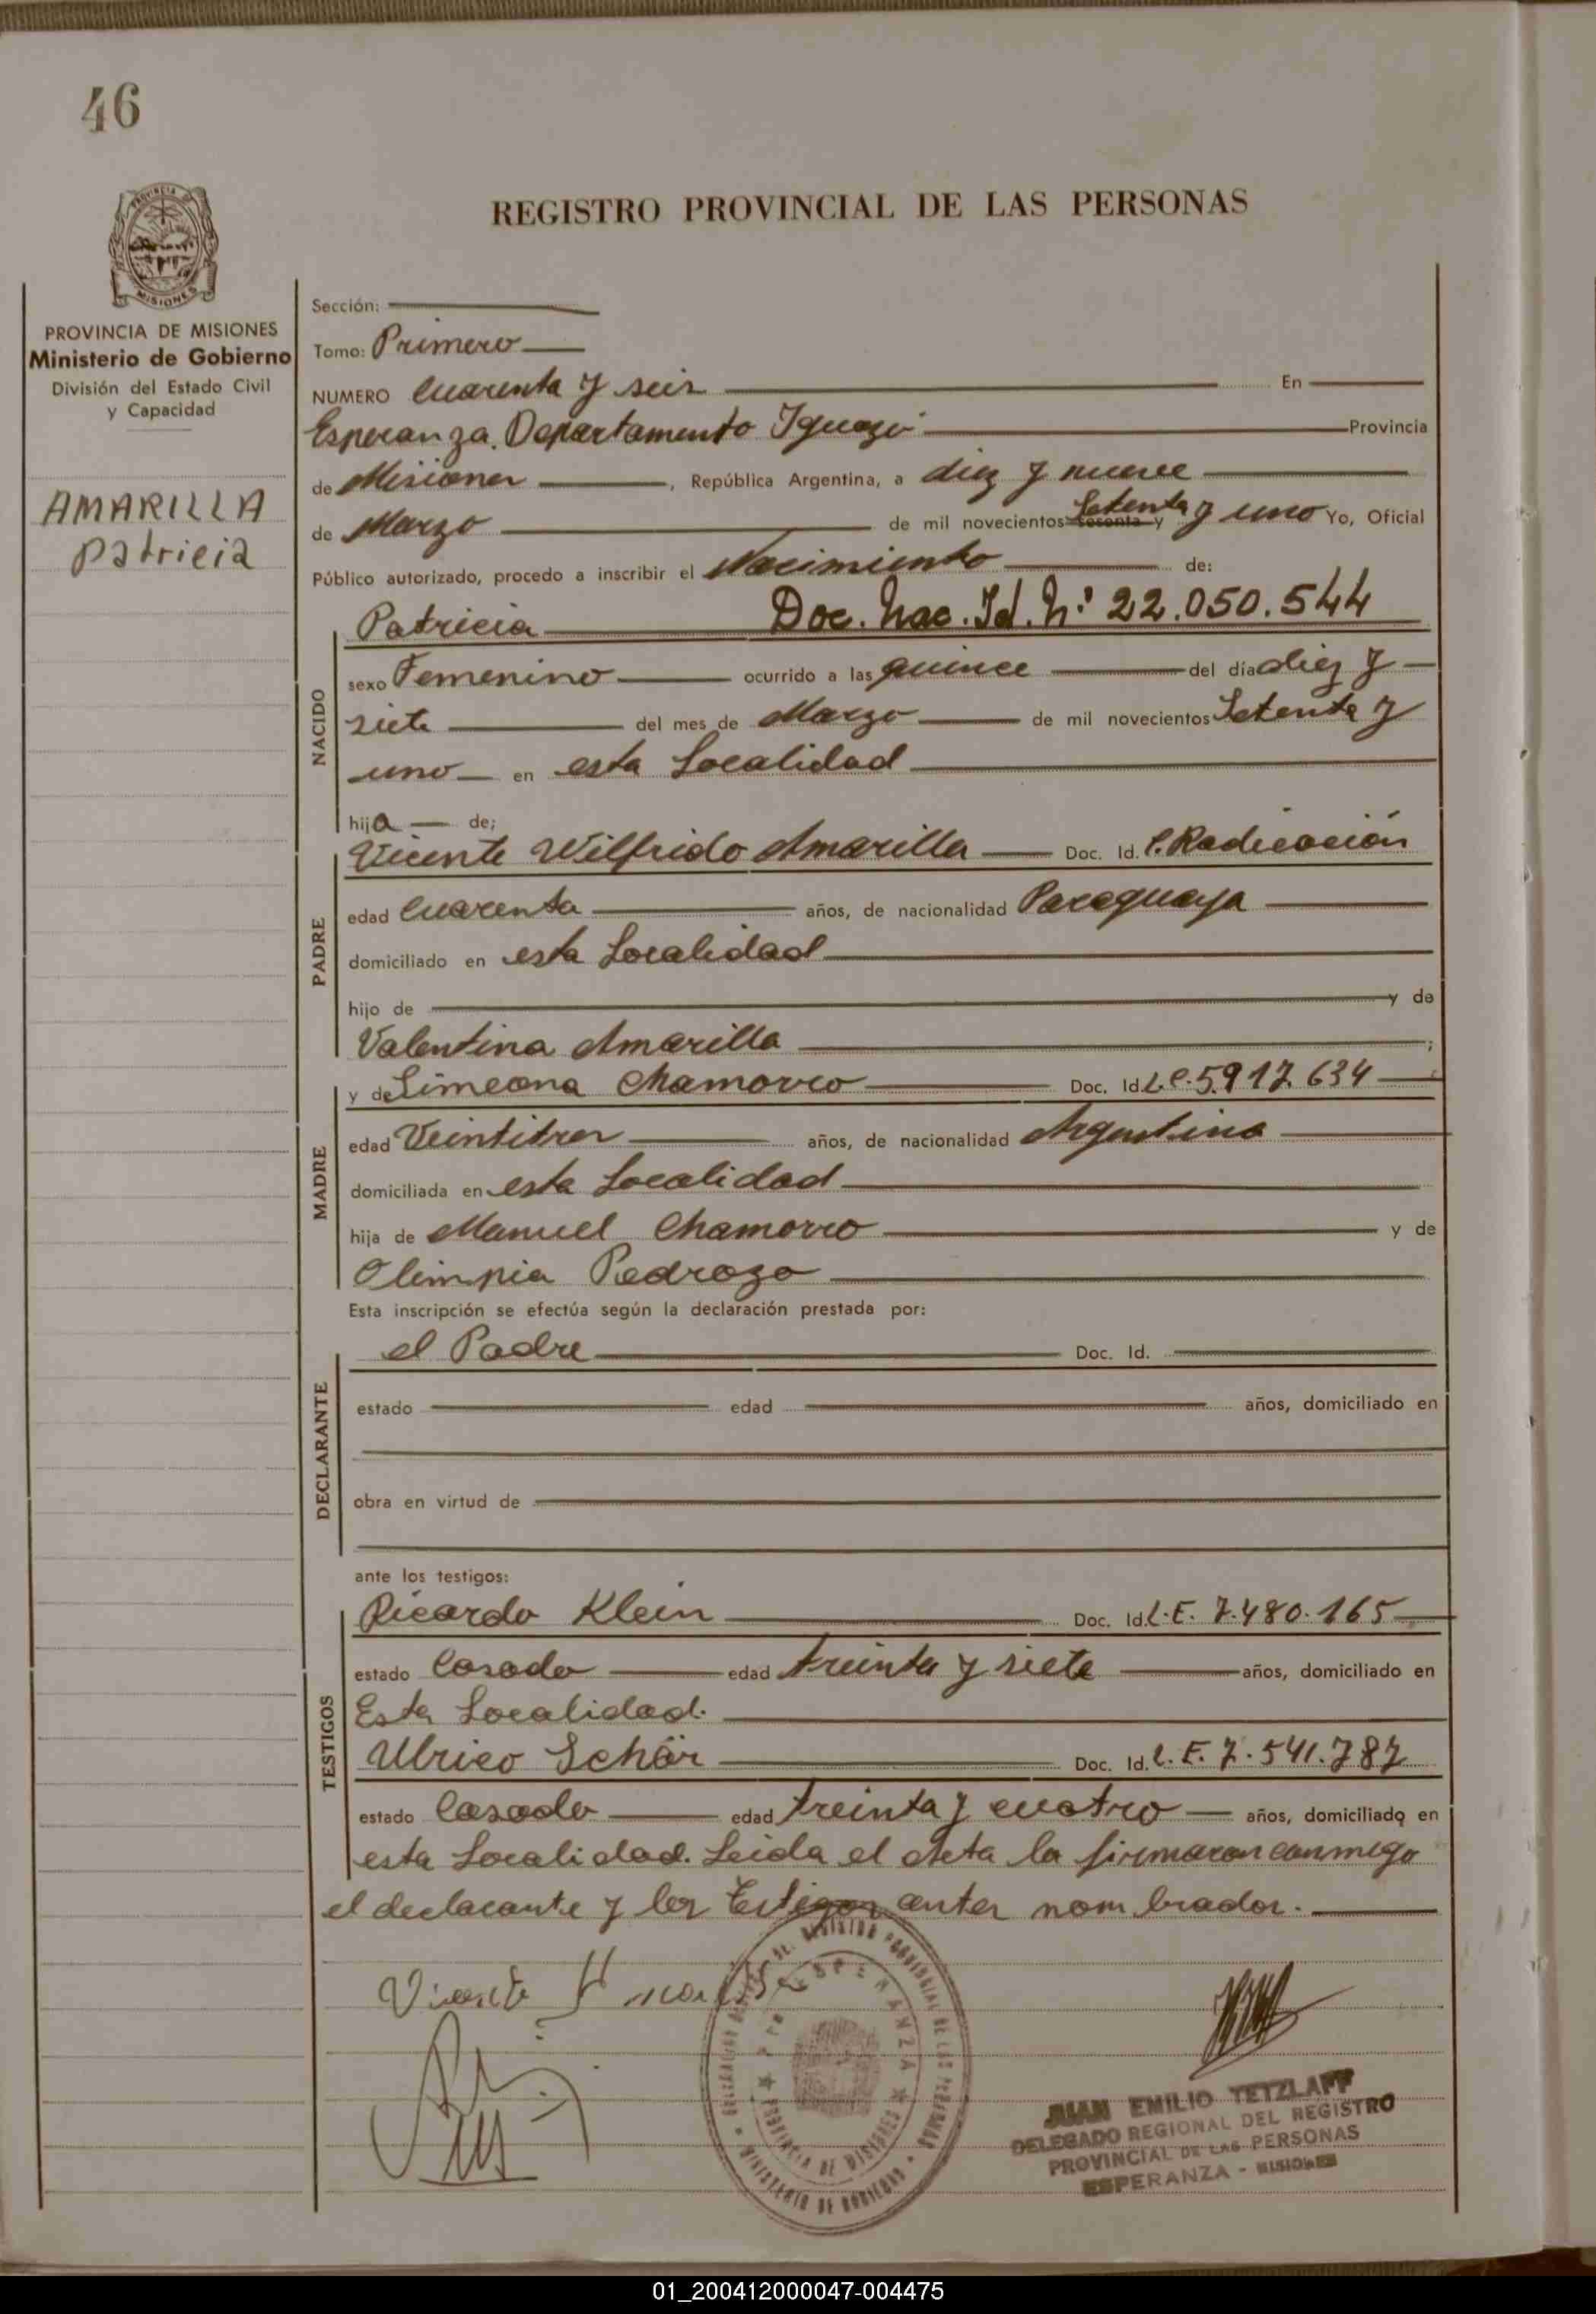 46
PROVINCIA DE
MISIONES
REGISTRO PROVINCIAL DE LAS PERSONAS
PROVINCIA DE MISIONES
Ministerio de Gobierno
División del Estado Civil
y Capacidad
AMARILLA
Patricia
Sección:
Tomo: Primero
NUMERO Cuarenta y seis En
Esperanza. Departamento Iguazú Provincia
de Misiones, República Argentina, a diez y nueve
de Marzo de mil novecientos sesenta y Setenta y uno Yo, Oficial
Público autorizado, procedo a inscribir el Nacimiento de:
Patricia Doc. Nac. Id. N° 22.050.544
NACIDO
sexo Femenino ocurrido a las quince del día diez y
siete del mes de Marzo de mil novecientos Setenta y
uno en esta Localidad
hija de;
Vicente Wilfrido Amarilla Doc. Id. C. Radicación
PADRE
edad Cuarenta años, de nacionalidad Paraguaya
domiciliado en esta Localidad
hijo de y de
Valentina Amarilla ;
y de Simeona Chamorro Doc. Id. L.C. 5.917.634
MADRE
edad Veintitres años, de nacionalidad Argentina
domiciliada en esta Localidad
hija de Manuel Chamorro y de
Olimpia Pedrozo
Esta inscripción se efectúa según la declaración prestada por:
el Padre Doc. Id.
DECLARANTE
estado edad años, domiciliado en
obra en virtud de
ante los testigos:
Ricardo Klein Doc. Id. L.E. 7.480.165
TESTIGOS
estado Casado edad treinta y siete años, domiciliado en
Esta Localidad.
Ulrico Schär Doc. Id. L.E. 7.541.787
estado Casado edad treinta y cuatro años, domiciliado en
esta Localidad. Leida el Acta la firmaron conmigo
el declarante y los Testigos antes nombrados.
Vicente Amarilla
ESPERANZA
PROVINCIA DE MISIONES
MINISTERIO DE GOBIERNO
JUAN EMILIO TETZLAFF
DELEGADO REGIONAL DEL REGISTRO
PROVINCIAL DE LAS PERSONAS
ESPERANZA - MISIONES
01_200412000047-004475